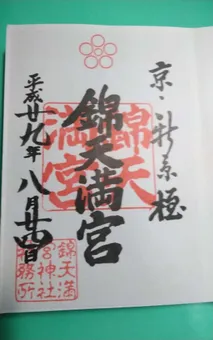 京・新京極
錦天満宮
錦天
満宮
平成廿九年 八月廿四日
錦天満
宮神社
務所